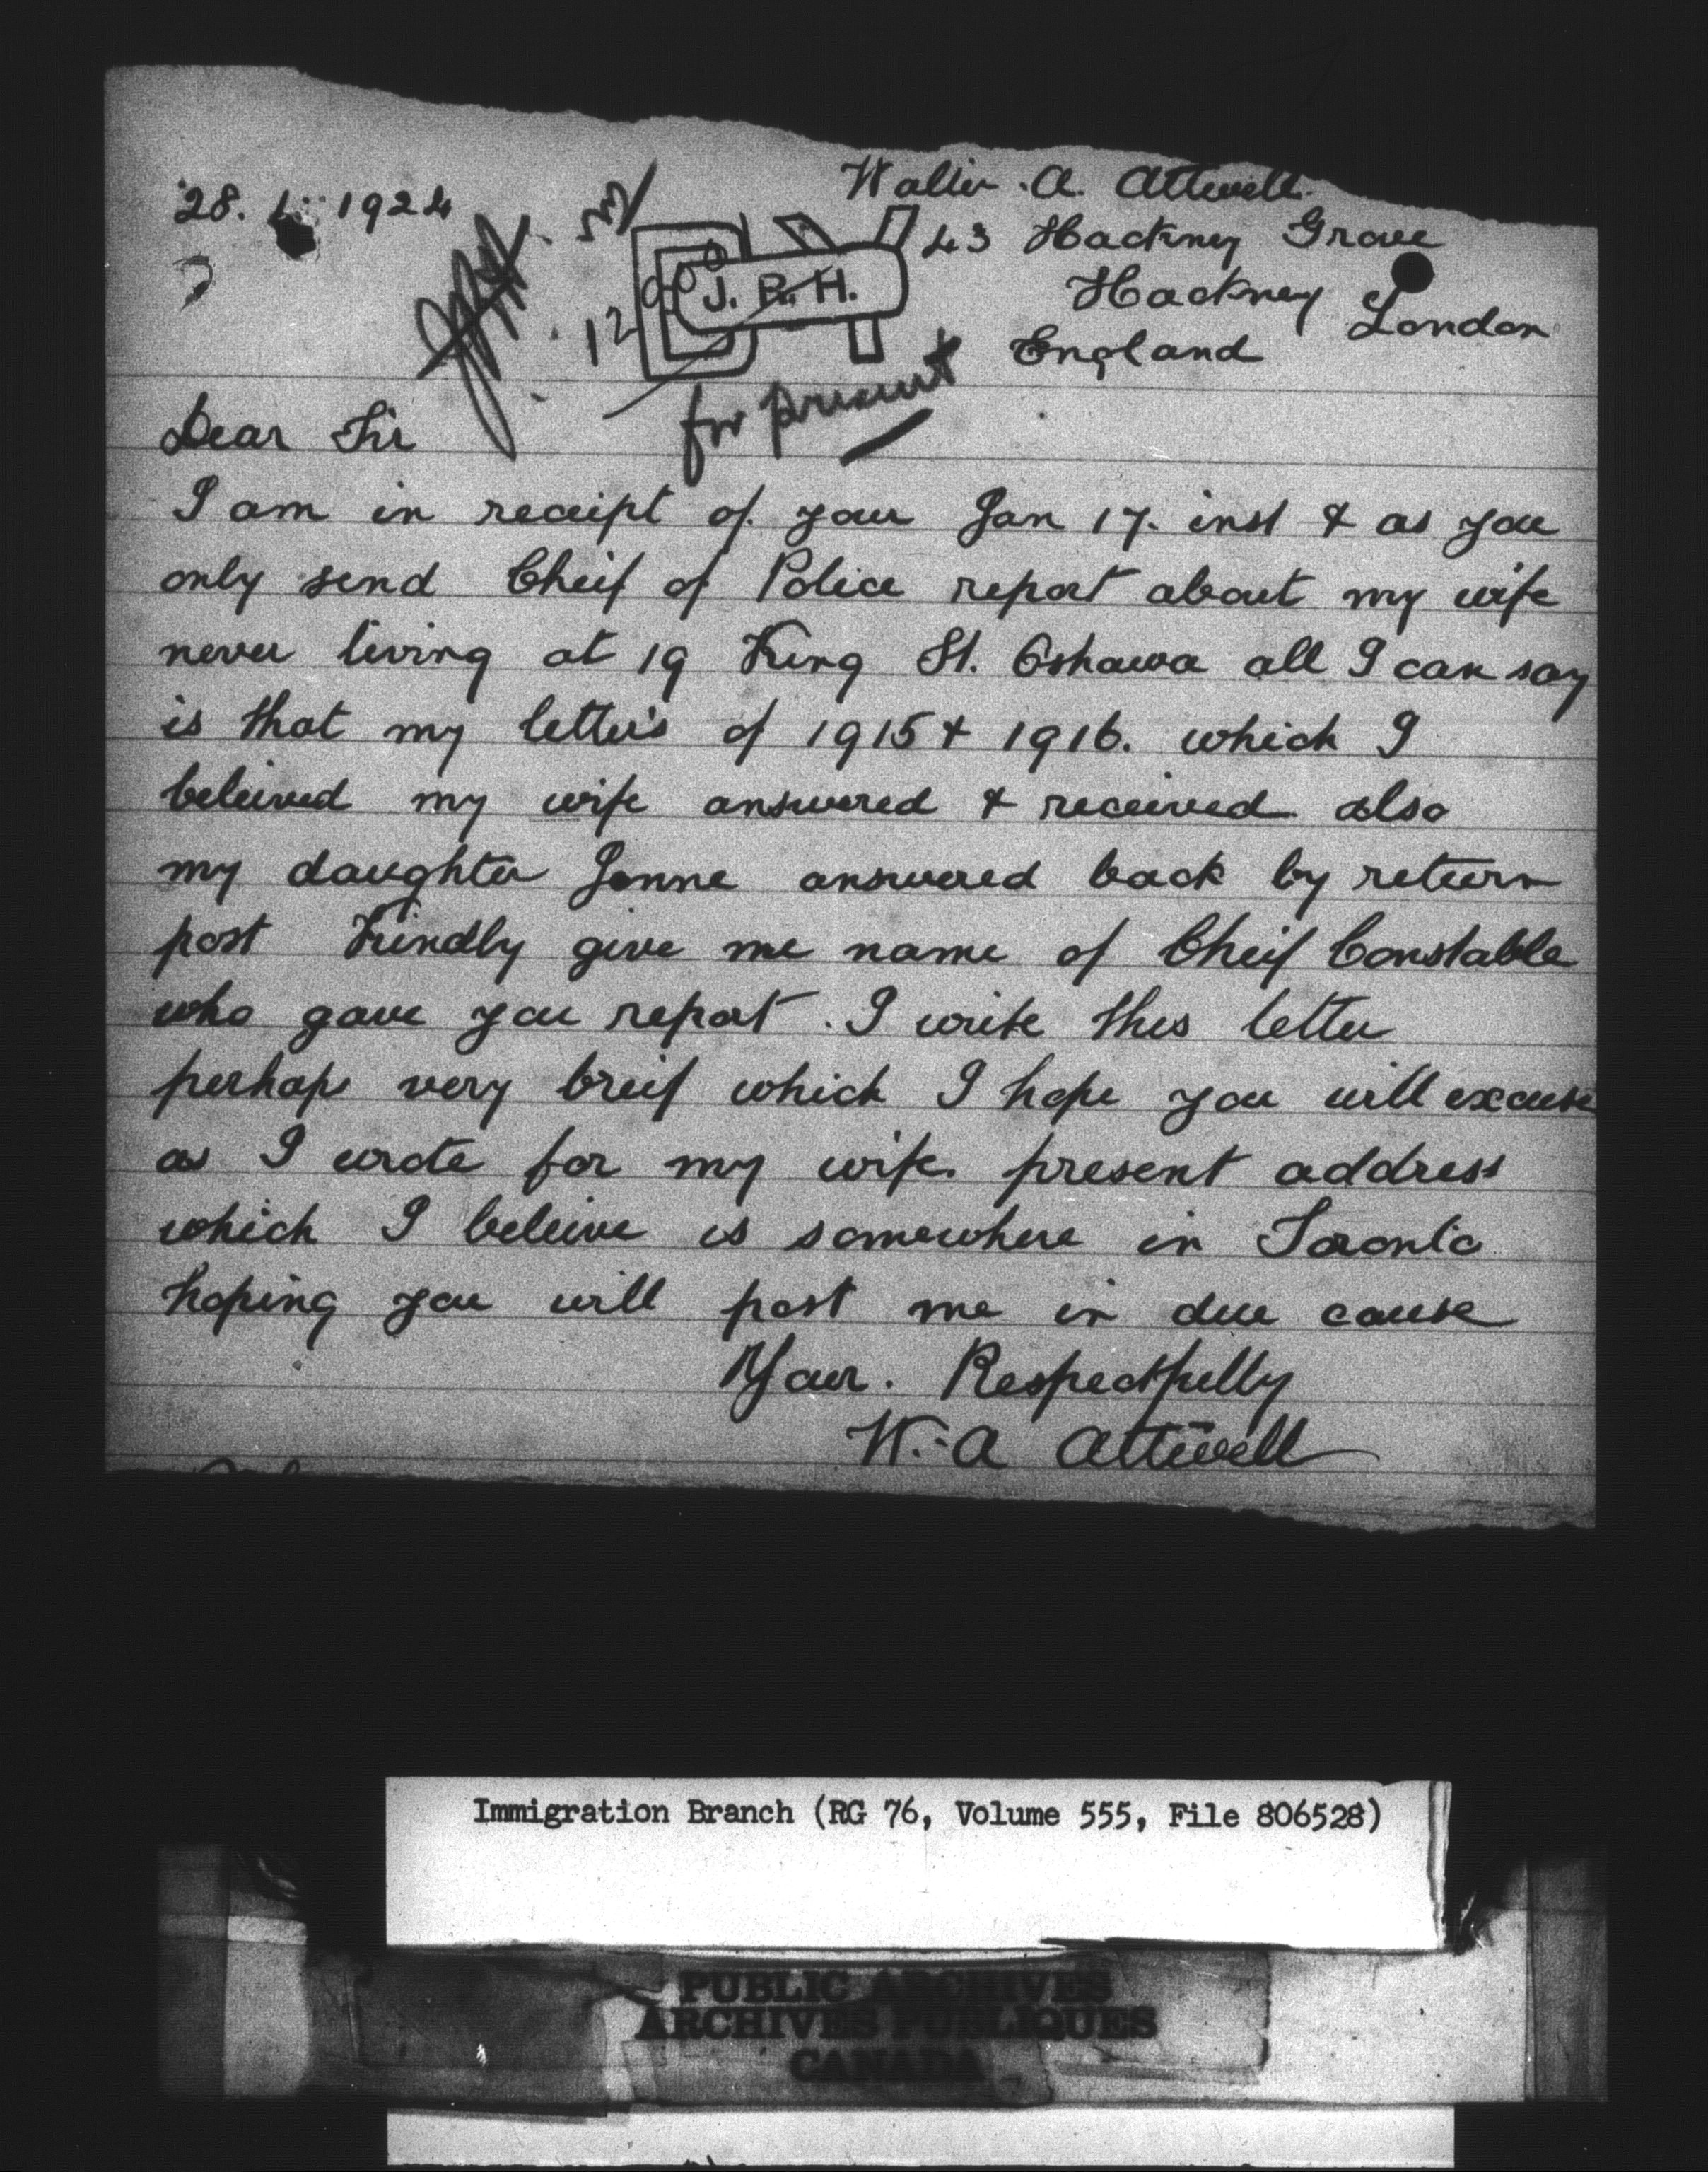 Walter A. Attwell.
28. 1. 1924
43 Hackney Grove
Hackney London
England
J. R. H.
for present
Dear Sir
I am in receipt of your Jan 17. inst & as you
only send Cheif of Police report about my wife
never living at 19 King St. Oshawa all I can say
is that my letter's of 1915 & 1916. which I
beleived my wife answered & received also
my daughter answered back by return
post Kindly give me name of Cheif Constable
who gave you report. I write this letter
perhaps very breif which I hope you will excuse
as I wrote for my wife. present address
which I beleive is somewhere in Toronto
hoping you will post me in due couse
Your. Respectfully
W. A Attwell
Immigration Branch (RG 76, Volume 555, File 806528)
PUBLIC ARCHIVES
ARCHIVES PUBLIQUES
CANADA